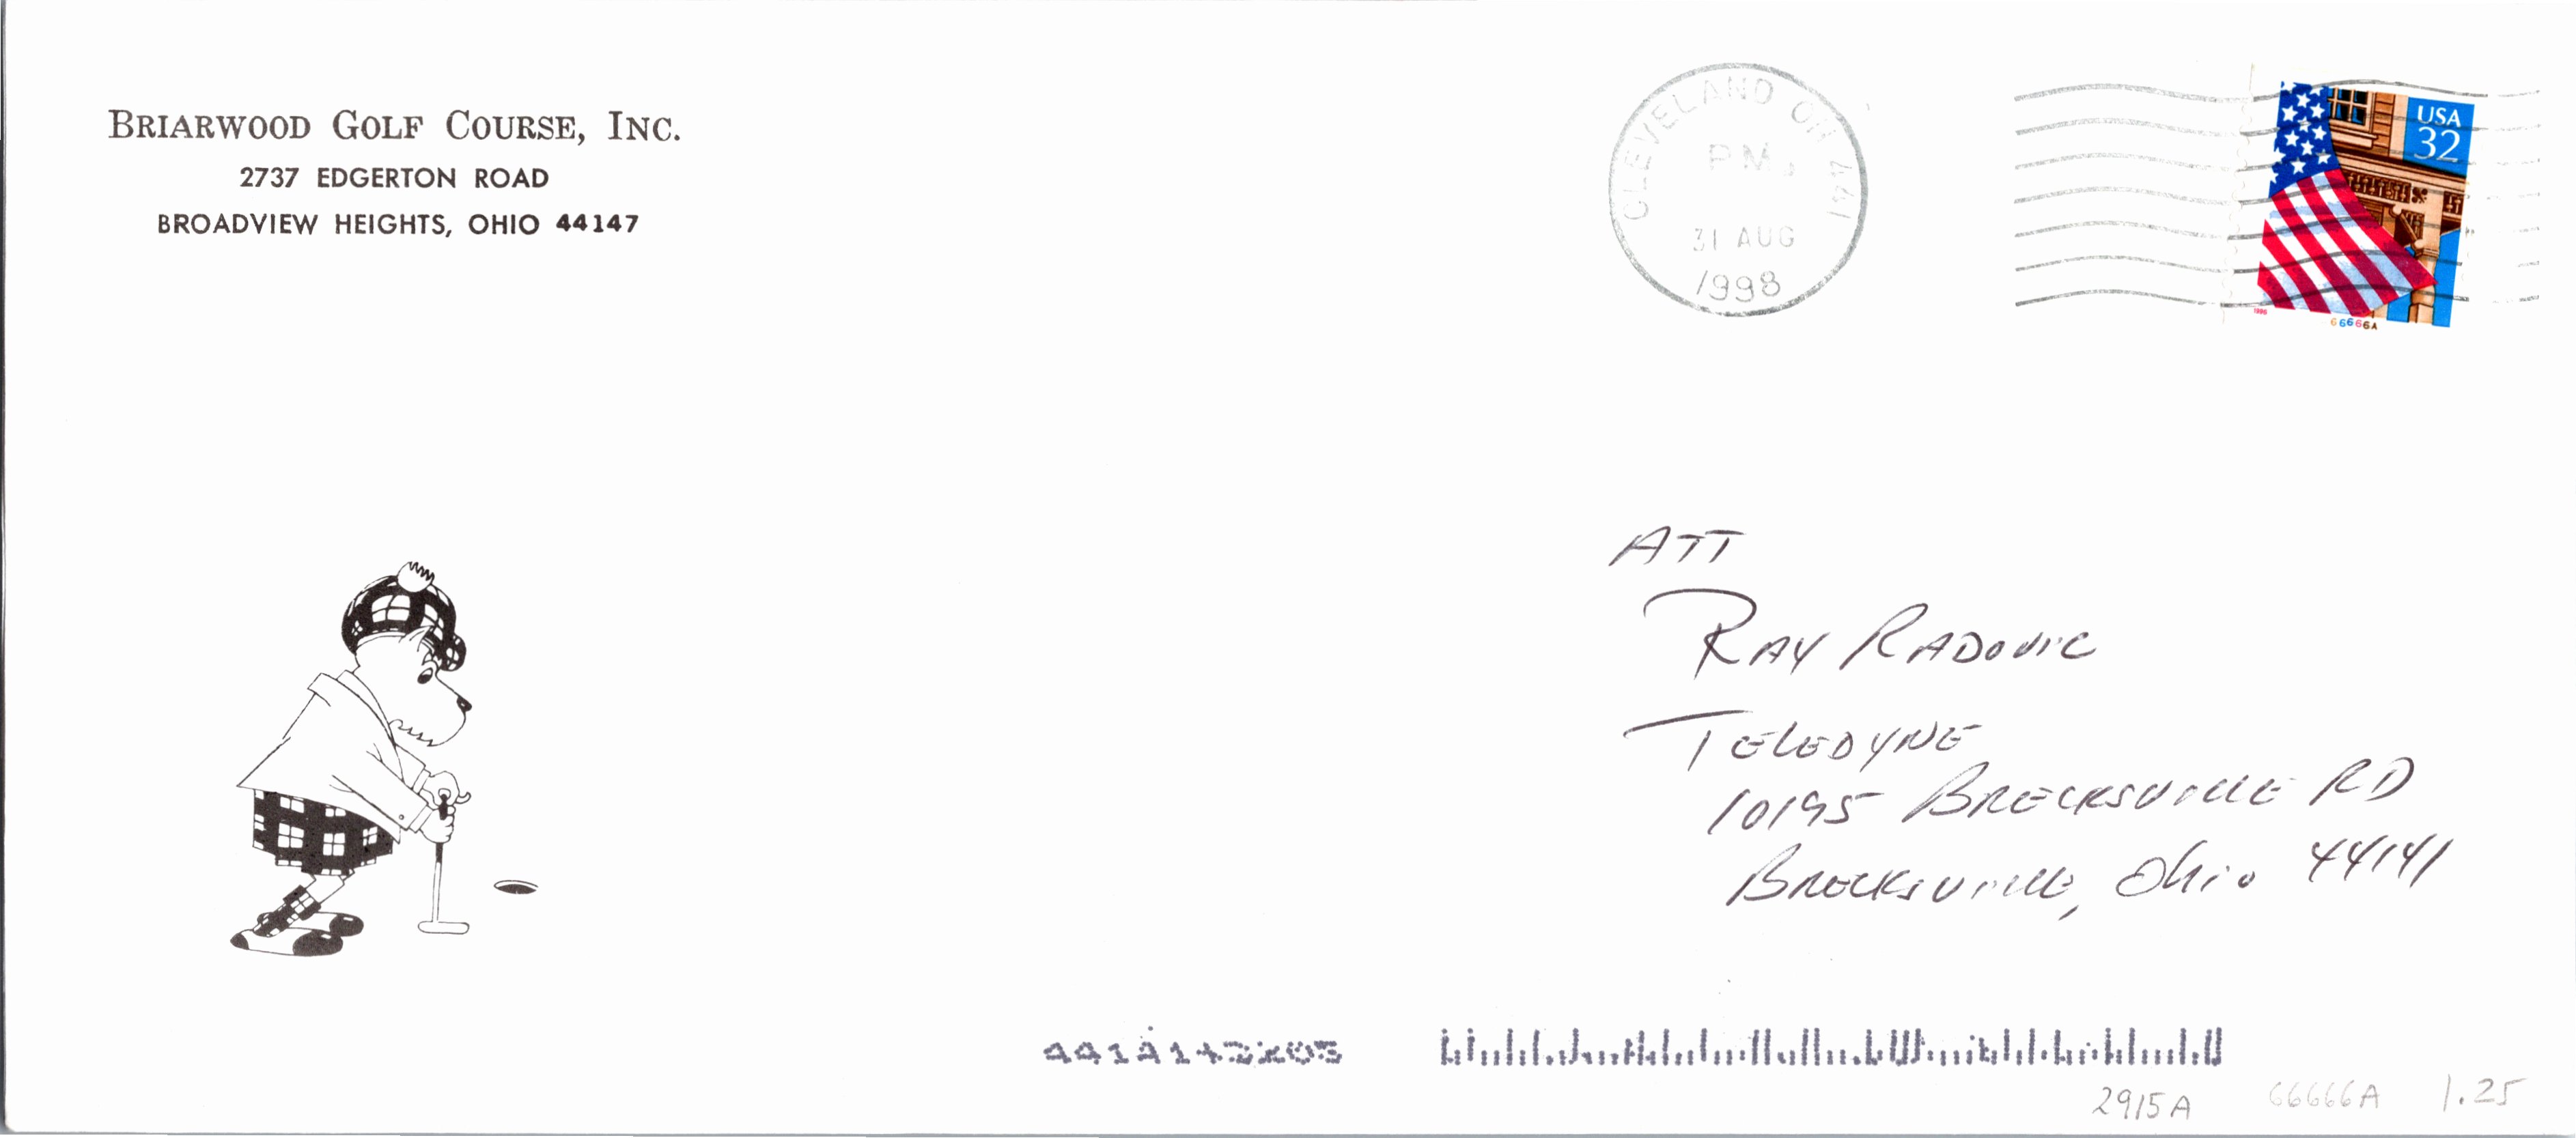 BRIARWOOD GOLF COURSE, INC.
2737 EDGERTON ROAD
BROADVIEW HEIGHTS, OHIO 44147
CLEVELAND OH 441
PM
31 AUG
1998
USA
32
1996
66666A
ATT
RAY RADOVIC
TELEDYNE
10195 BRECKSVILLE RD
BRECKSVILLE, Ohio 44141
2915A 66666A 1.25